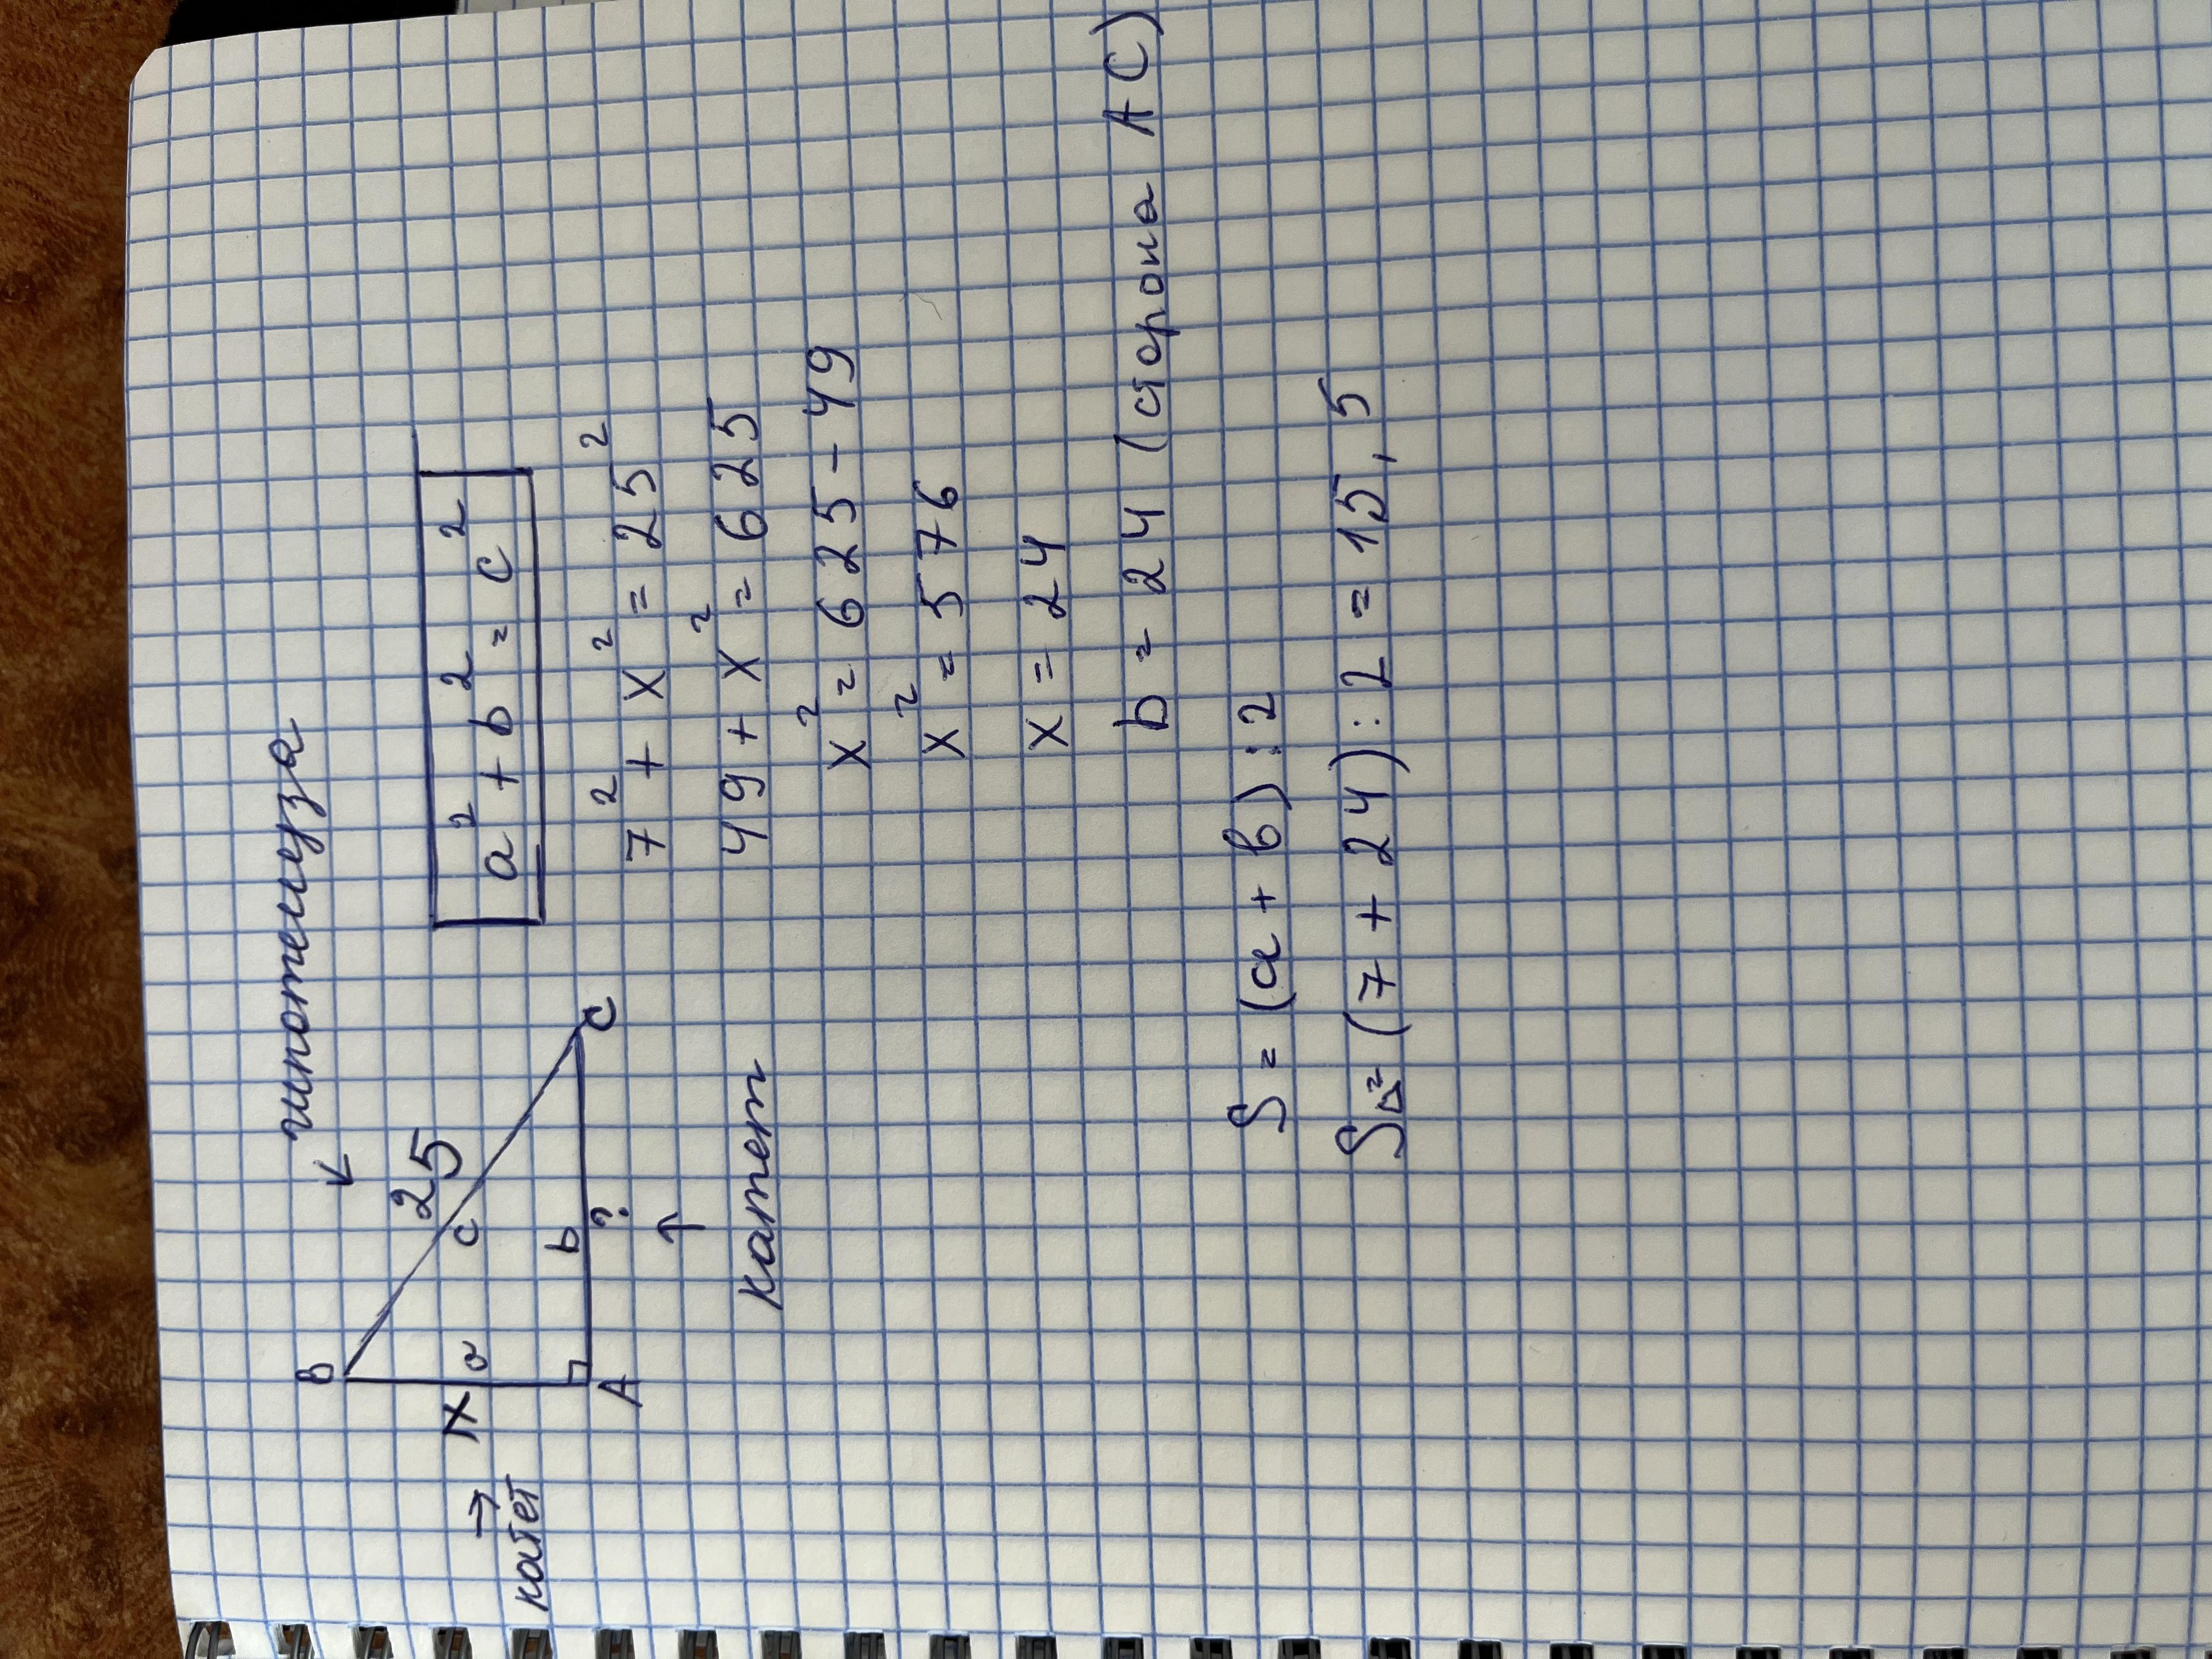 гипотенуза
B
25
c
7
a
b
A
?
C
→
катет
↑
катет
a² + b² = c²
7² + x² = 25²
49 + x² = 625
x² = 625 - 49
x² = 576
x = 24
b = 24 (сторона AC)
S = (a + b) : 2
S△ = (7 + 24) : 2 = 15,5